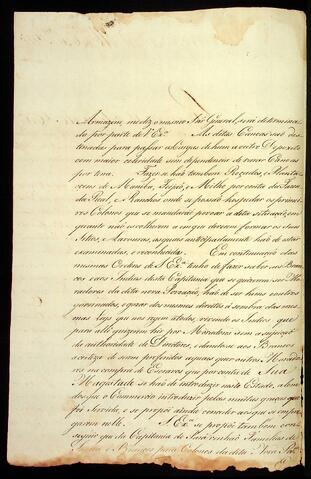 Armazem, me diz o mesmo Snr General, será determina
do por parte de V Exa. As ditas Canoas são des
tinadas para passar as Cargas de hum a outro Deposito
com maior celeridade sem dependencia de varar Canoas
por terra. Fazer se hão tambem Roçados, e Planta
coens de Maniba, Feijão, e Milho por conta da Fazen
da Real, e Ranchos onde se possão hospedar os primei
ros Colonos que se mandarão povoar a dita situação, em
quanto não escolherem as em que devem formar os seus
Sitios, e Lavouras, as quaes anticipadamente hão de estar
examinadas, e reconhecidas. Em continuação das
mesmas Ordens de S Exa. tenho de fazer saber aos Bran
cos, e aos Indios desta Capitania que se quizerem ser Mo
radores da dita nova Povoação, hão de ser bons
governados, e gozar dos mesmos direitos, e izençoens das mes
mas Leys que nos regem a todos, vivendo os Indios que
para alli quizerem hir por Moradores sem a sujeição
da authoridade de Directores, e dandose aos Brancos
a certeza de serem preferidos a quaes quer outros Morado
res na compra de Escravos que por conta de Sua
Magestade se hão de introduzir neste Estado, alem
dos que o Commercio introduzir pelas muitas graças que
foi Servida, e se propoe ainda conceder aos que se empre
garem nelle. S Exa. se propoem tambem com
segurão que da Capitania do Pará venhão Familias de
Indios e Brancos para Colonos da dita Nova Po